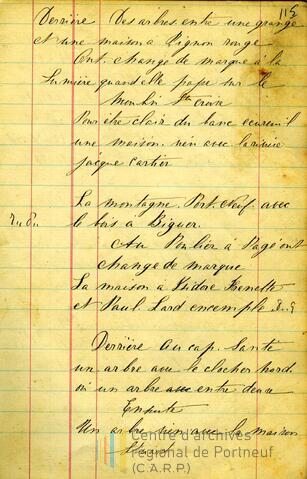 115
Derrière Des arbres entre une grange
et une maison a Pignon rouge
Ont change de marque a la
Lumière quand elle passe sur le
Moulin Ste croix
Pour être clair du banc ecureuil
une maison vien avec la rivière
jacque cartier
La montagne Port Neuf avec
le bois à Biguer.
Au Poulier à Pagé ont
change de marque
La maison a Isidore Benelle
et Paul Lard encemple
Derrière Au cap Santé
un arbre avec le clocher nord
où un arbre entre deux
Ensuite
Un arbre vien avec la maison
Centre d'archives
régional de Portneuf
(C.A.R.P.)